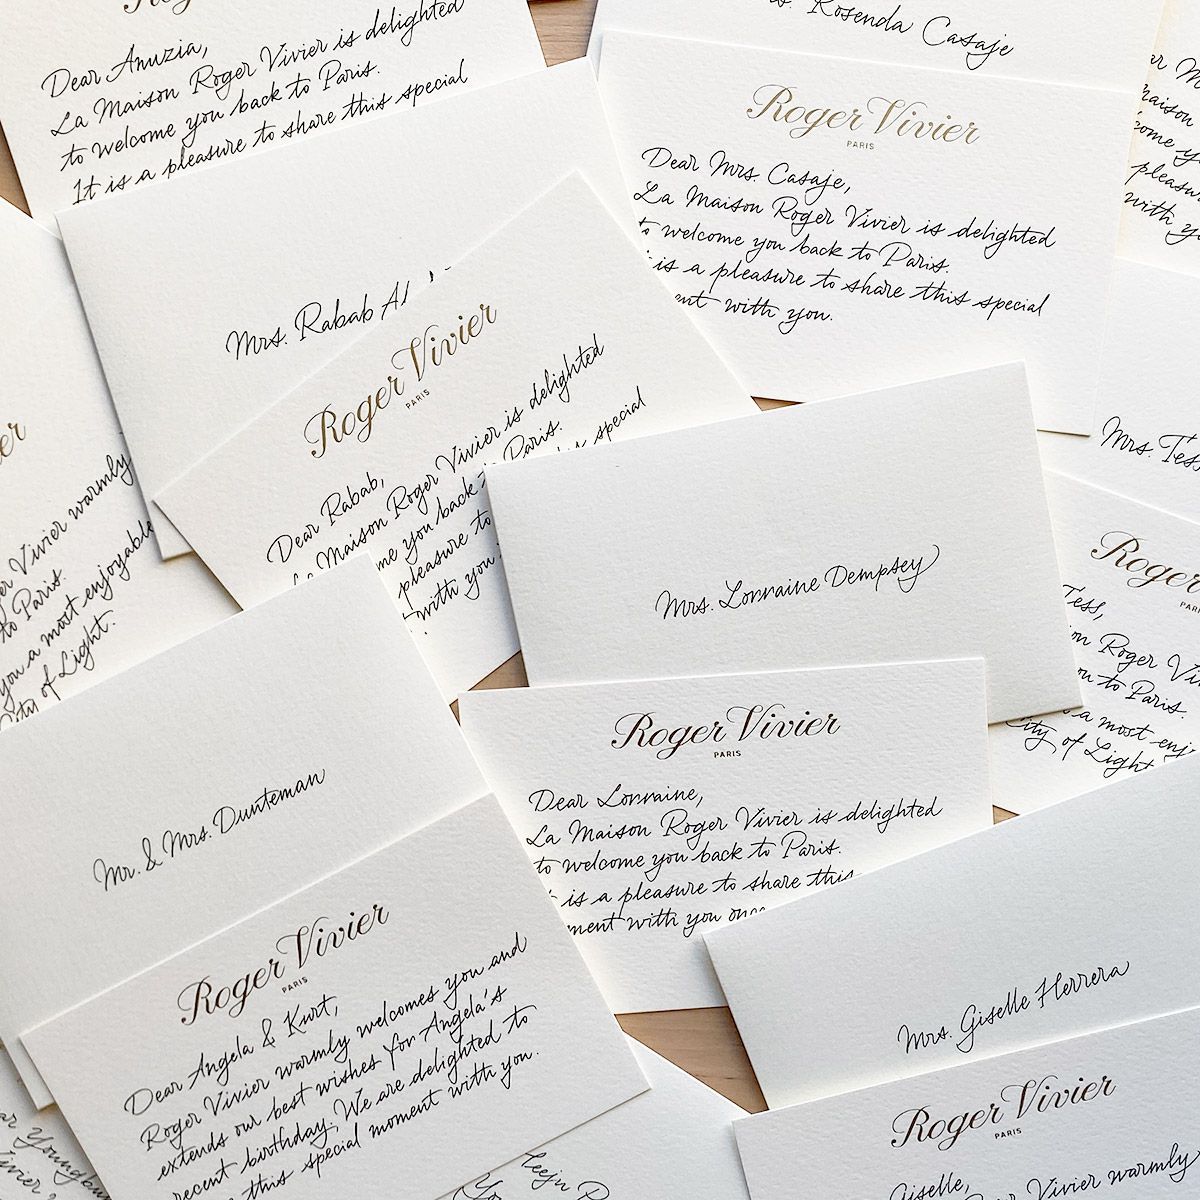 Dear Anuzia,
La Maison Roger Vivier is delighted
to welcome you back to Paris.
It is a pleasure to share this special
Rosenda Casaje
Roger Vivier
PARIS
Dear Mrs. Casaje,
La Maison Roger Vivier is delighted
to welcome you back to Paris.
is a pleasure to share this special
with you.
Mrs. Rabab
Roger Vivier
PARIS
Dear Rabab,
Maison Roger Vivier is delighted
you back to Paris.
pleasure to special
with you
Vivier warmly
to Paris.
you a most enjoyable
City of Light.
Mrs. Lorraine Dempsey
Mrs. Tess
Roger
Tess,
Roger
you to Paris.
a most
City of Light
Roger Vivier
PARIS
Dear Lorraine,
La Maison Roger Vivier is delighted
to welcome you back to Paris.
is a pleasure to share this
with you
Mr. & Mrs. Dunteman
Roger Vivier
PARIS
Dear Angela & Kurt,
Roger Vivier warmly welcomes you and
extends our best wishes for Angela's
recent birthday. We are delighted to
this special moment with you.
Mrs. Giselle Herrera
Roger Vivier
PARIS
Giselle,
Vivier warmly